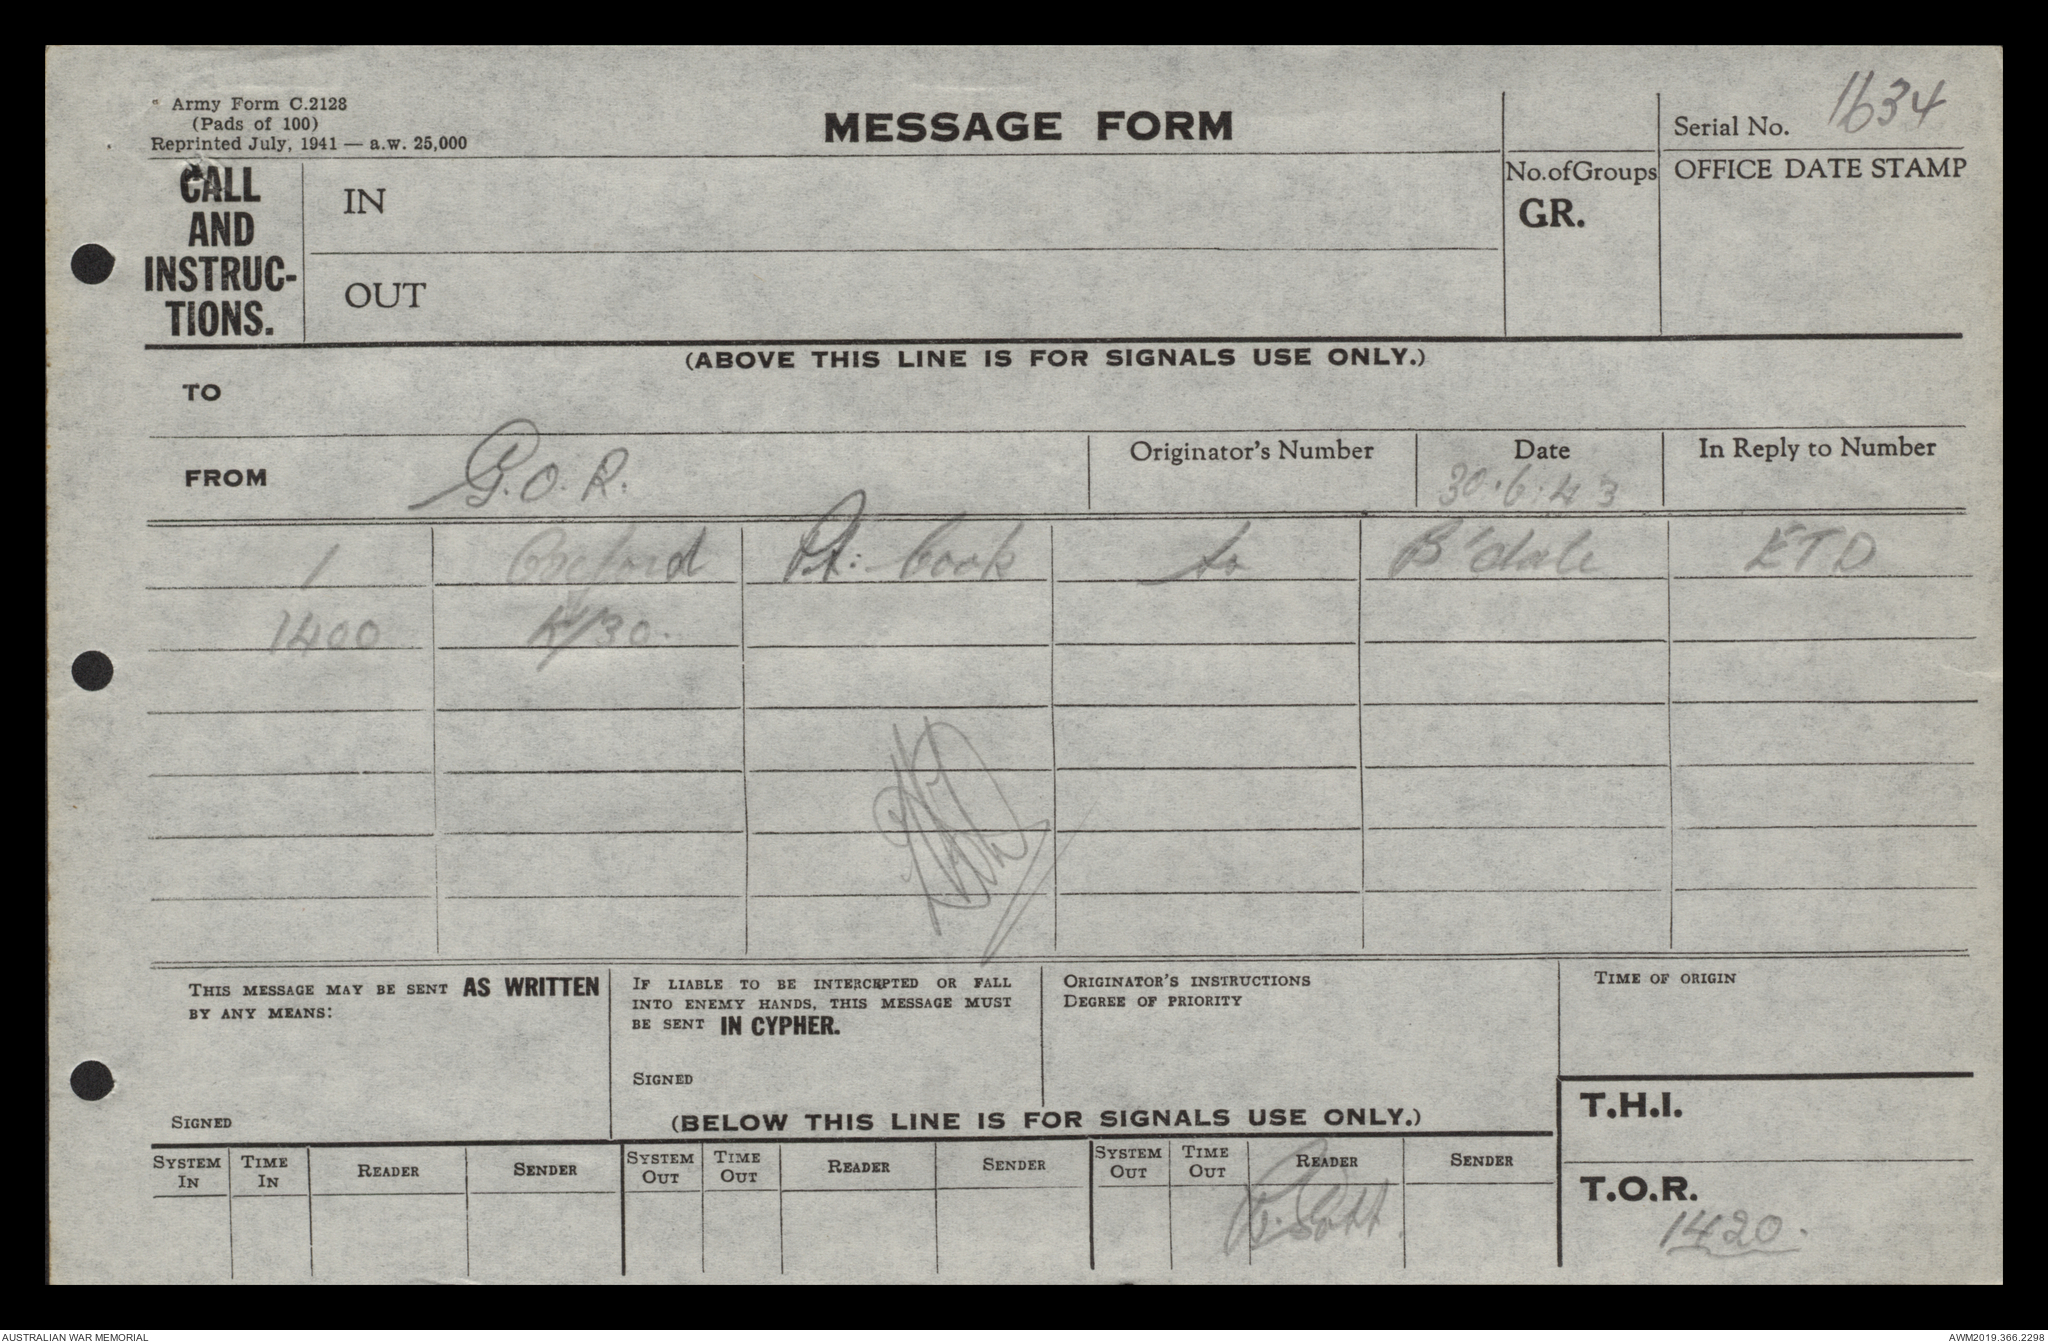 Army Form C.2128
(Pads of 100)
Reprinted July, 1941 — a.w. 25,000
MESSAGE FORM
Serial No. 1634
CALL AND INSTRUC-TIONS.
IN
OUT
No.ofGroups
GR.
OFFICE DATE STAMP
(ABOVE THIS LINE IS FOR SIGNALS USE ONLY.)
TO
FROM G.O.R.
Originator's Number
Date
30.6.43
In Reply to Number
1 Oxford Pt. Cook to B'dale ETD
1400 K/30.
THIS MESSAGE MAY BE SENT AS WRITTEN
BY ANY MEANS:
SIGNED
IF LIABLE TO BE INTERCEPTED OR FALL
INTO ENEMY HANDS, THIS MESSAGE MUST
BE SENT IN CYPHER.
SIGNED
ORIGINATOR'S INSTRUCTIONS
DEGREE OF PRIORITY
TIME OF ORIGIN
(BELOW THIS LINE IS FOR SIGNALS USE ONLY.)
T.H.I.
T.O.R.
1420.
SYSTEM IN
TIME IN
READER
SENDER
SYSTEM OUT
TIME OUT
READER
SENDER
SYSTEM OUT
TIME OUT
READER
SENDER
AUSTRALIAN WAR MEMORIAL
AWM2019.366.2298